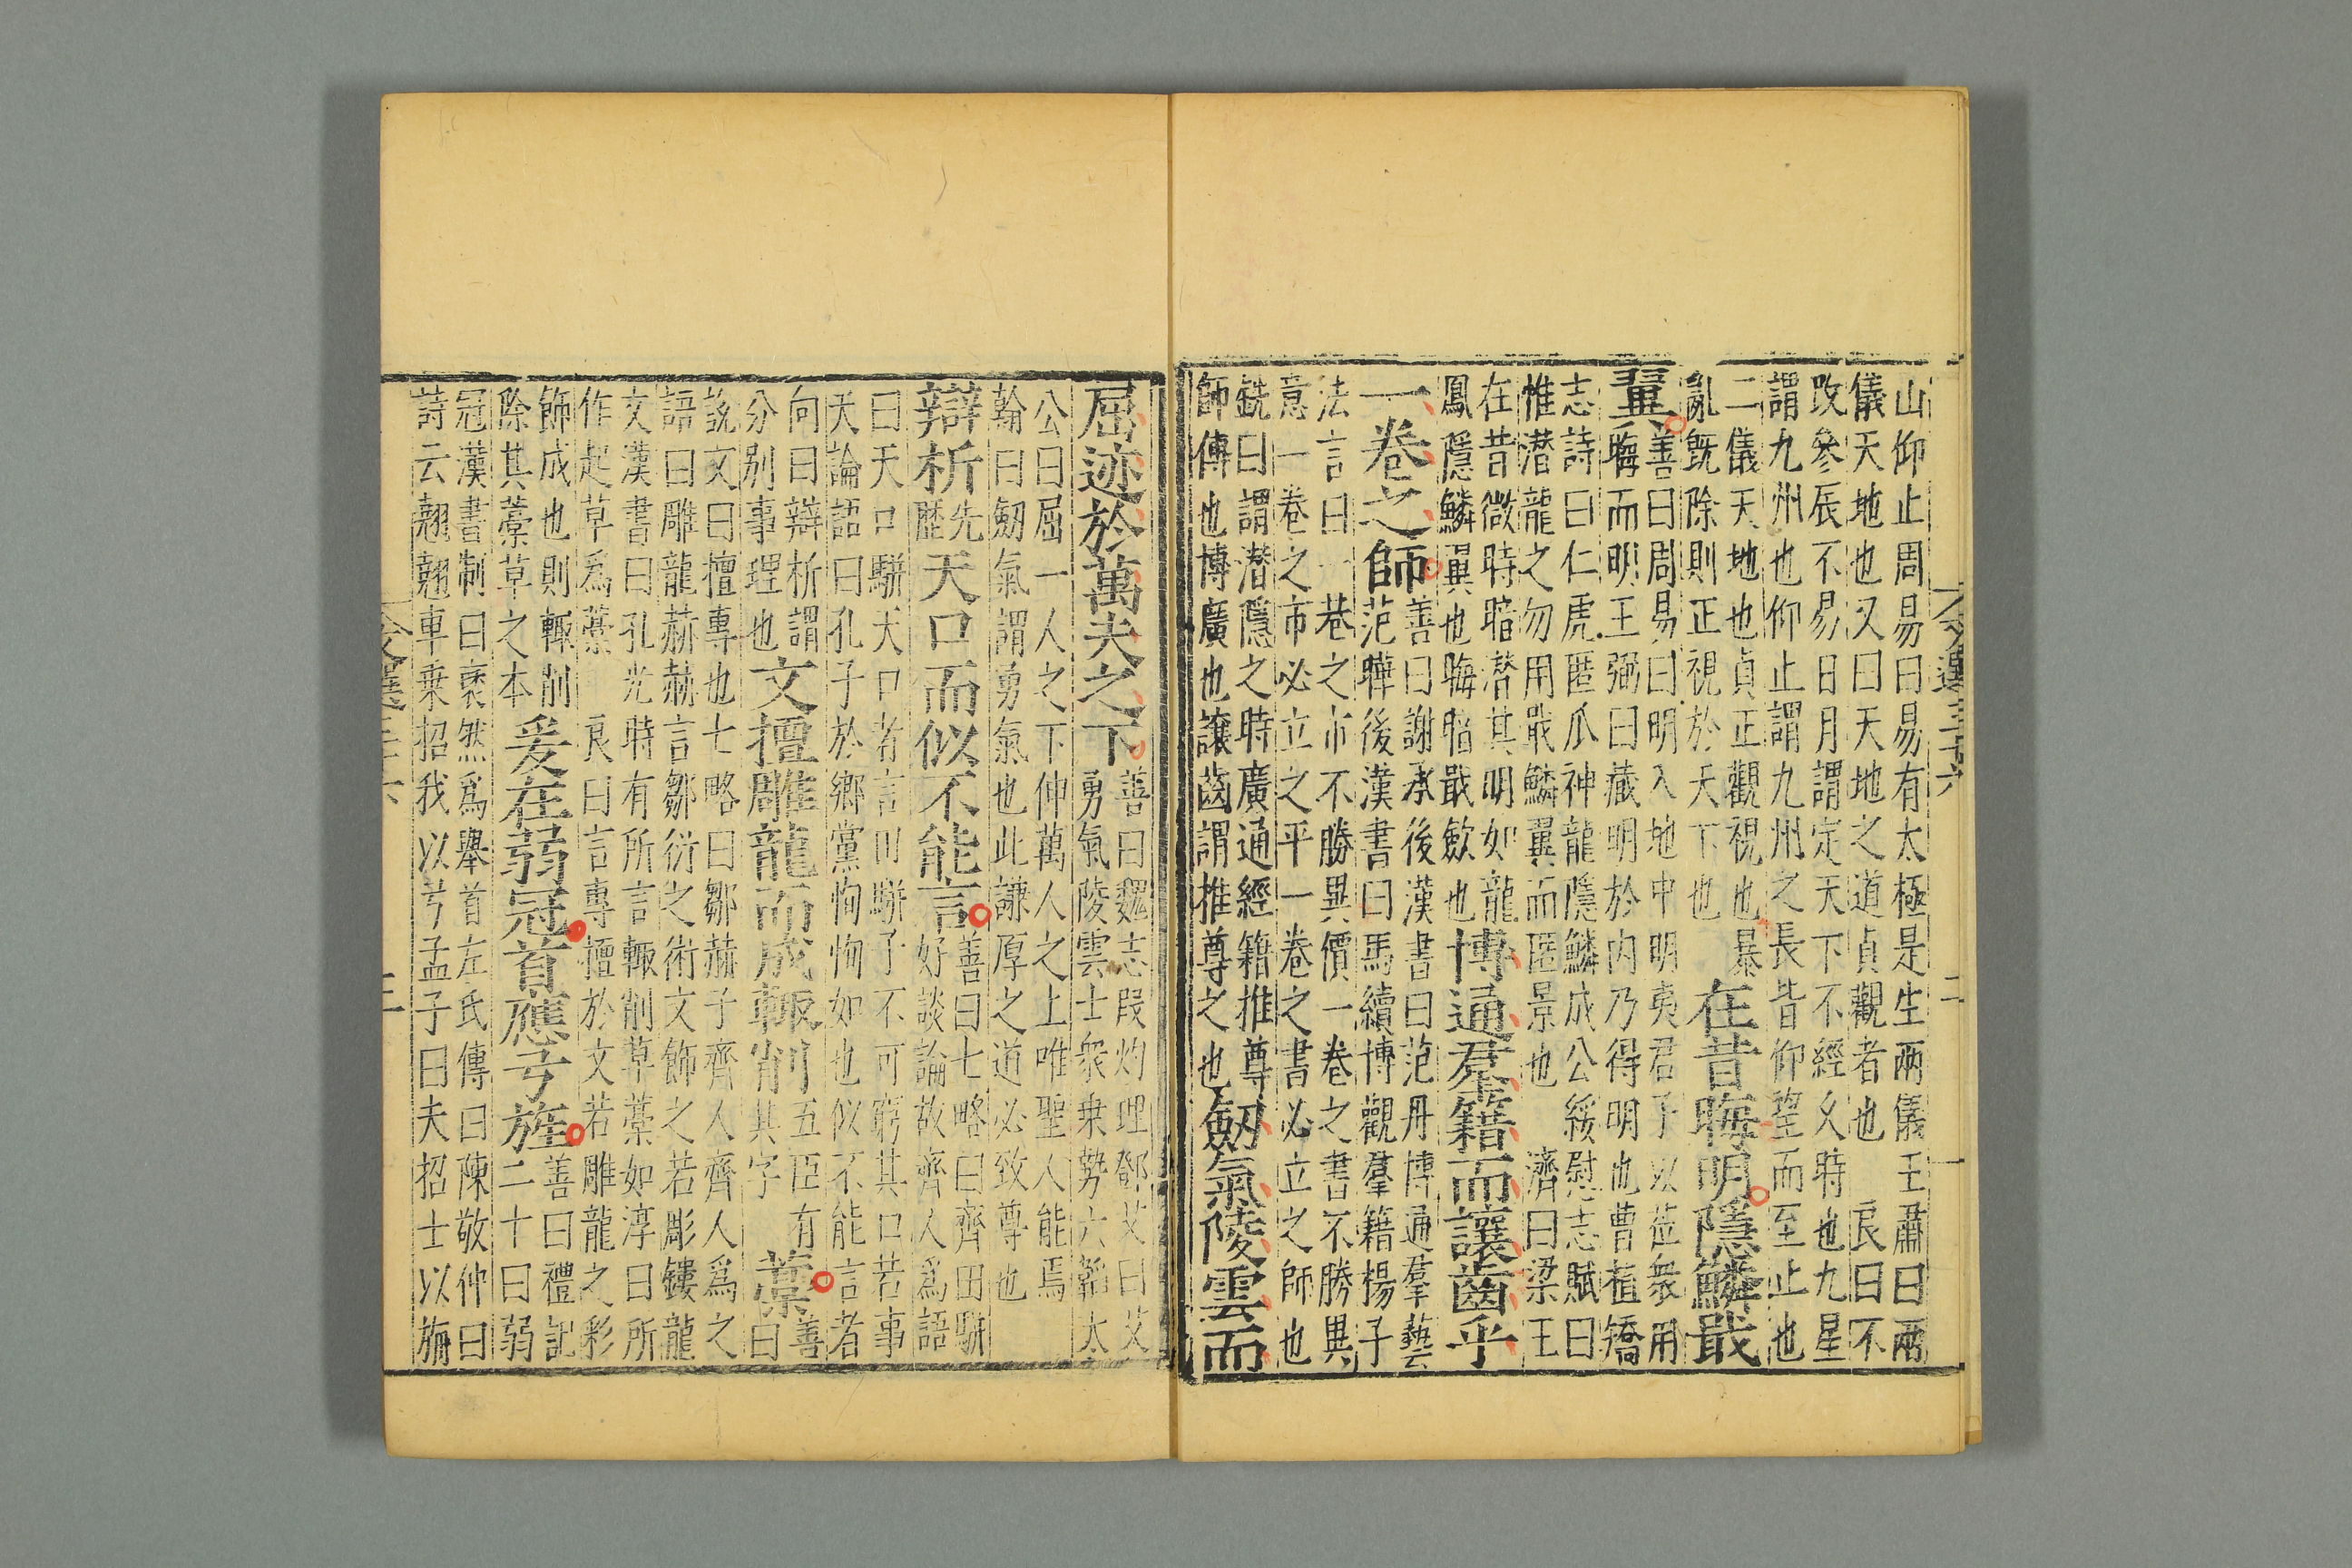 山仰止周易曰易有太極是生兩儀王肅曰兩
儀天地也又曰天地之道貞觀者也 良曰不
改參辰不易日月謂定天下不經久時也九星
謂九州也仰止謂九州之長皆仰望而至止也
二儀天地也貞正觀視也暴
亂既除則正視於天下也
在昔晦明隱鱗戢
翼
善曰周易曰明入地中明夷君子以莅衆用
晦而明王弼曰藏明於内乃得明也曹植矯
志詩曰仁虎匿爪神龍隱鱗成公綏慰志賦曰
惟潜龍之勿用戢鱗翼而匿景也 濟曰梁王
在昔微時暗潜其明如龍
鳳隱鱗翼也晦暗戢斂也
博通羣籍而讓齒乎
一卷之師
善曰謝承後漢書曰范丹博通羣藝
范曄後漢書曰馬續博觀羣籍楊子
法言曰一巷之市不勝異價一巷之書不勝異
意一卷之市必立之平一卷之書必立之師也
銑曰謂潜隱之時廣通經籍推尊
師傅也博廣也讓齒謂推尊之也
劒氣陵雲而
文選三十六 二
屈迹於萬夫之下
善曰魏志段灼理鄧艾曰艾
勇氣陵雲士衆乗勢六韜太
公曰屈一人之下伸萬人之上唯聖人能焉
翰曰劒氣謂勇氣也此謙厚之道必致尊也
辯析
先
歷
天口而似不能言
善曰七略曰齊田駢
好談論故齊人爲語
曰天口駢天口者言田駢子不可窮其口若事
天論語曰孔子於鄉黨恂恂如也似不能言者
向曰辯析謂
分别事理也
文擅雕龍而成輙削
五臣有
其字
藁
善
曰
説文曰擅專也七略曰鄒赫子齊人齊人爲之
語曰雕龍赫赫言鄒衍之術文飾之若彫鏤龍
文漢書曰孔光時有所言輙削草藁如淳曰所
作起草爲藁 良曰言專擅於文若雕龍之彩
飾成也則輙削
除其藁草之本
爰在弱冠首應弓旌
善曰禮記
二十曰弱
冠漢書制曰裒然爲舉首左氏傳曰陳敬仲曰
詩云翹翹車乗招我以弓孟子曰夫招士以旃